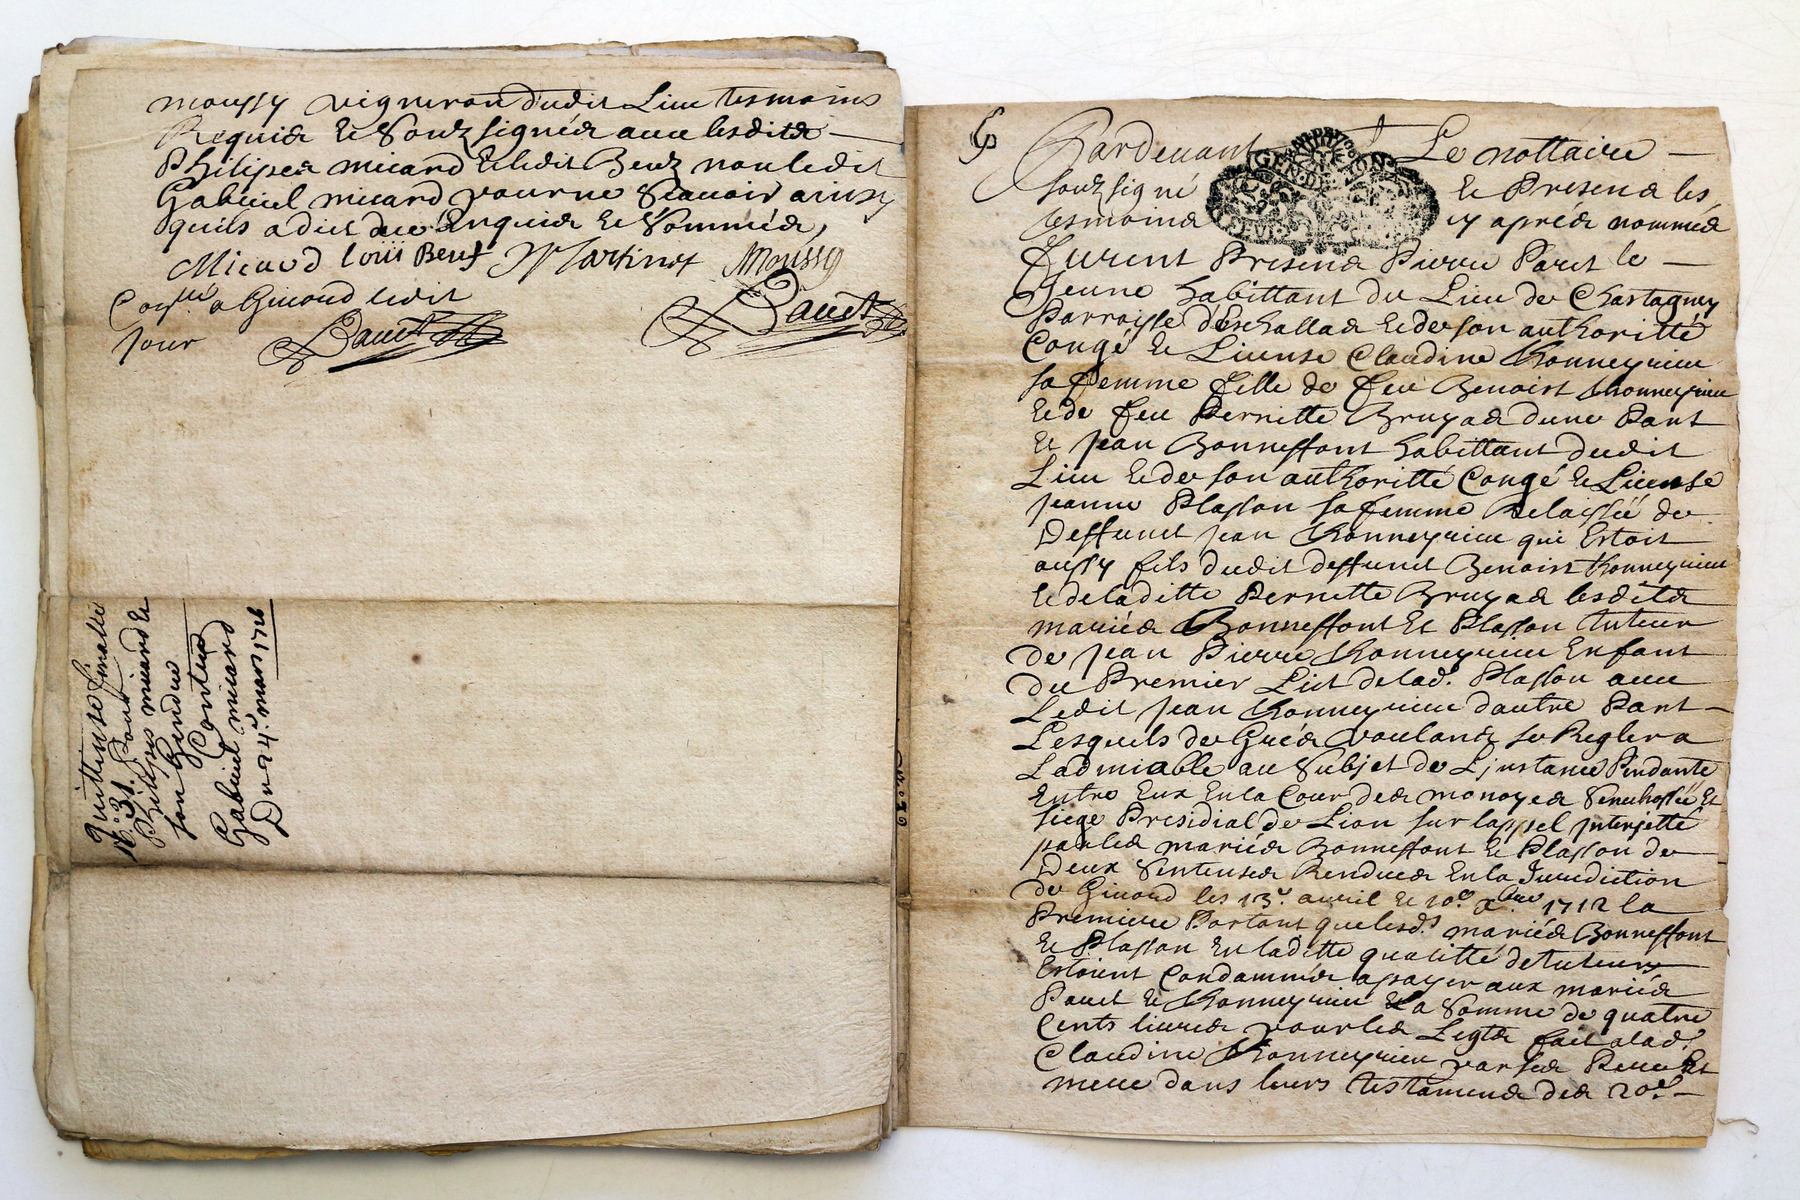 moussy vigneron dudit Lieu tesmoins
Requis et Soubzsignés avec lesdits
Philipes micard et ledit Beuf non ledit
Gabriel micard pour ne Scavoir ainsy
quils a dit de ce Enquis et Sommés,
Micard louis Beuf Martinot Moussy
a Givord ledit
Jour
Quittense finalle
Philipes micard et
son Gendre
Contre
Gabriel micard
Du 24e. mars 1716
Pardevant Le nottaire
soubzsigné et Presens les
tesmoins cy aprés nommés
furent Presens Pierre Paret le
Jeune habittant du Lieu de Chastagny
Parroisse d'Eschallas et de son authoritté
Congé et License Claudine Thonneyrieu
sa femme fille de feu Benoist Thonneyrieu
et de feu Pernette Bruyas d'une Part
Et Jean Bonneffont habittant dudit
Lieu et de son authoritté Congé et License
Jeanne Plasson sa femme Relaissée de
Deffunct Jean Thonneyrieu qui Estoit
aussy fils dudit deffunct Benoist Thonneyrieu
et de laditte Pernette Bruyas lesdits
mariés Bonneffont Et Plasson tuteur
de Jean Pierre Thonneyrieu Enfant
du Premier Lict de lad. Plasson avec
Ledit Jean Thonneyrieu d'autre Part
Lesquels de Grés voulants se Regler a
L'admiable au Subjet de L'jnstance Pendante
Entre Eux En la Cour des monoyes Senechossée Et
siege Presidial de Lion sur lappel jnterjetté
par les mariés Bonneffont et Plasson de
Deux Sentenses Rendues En la Jurediction
de Givord les 13e. avril et 10e xbre 1712 la
Premiere Portant que lesds mariés Bonneffont
et Plasson En laditte qualitté de tuteurs
Estoient Condammés a payer aux mariés
Paret et Thonneyrieu la Somme de quatre
Cents livres pour les Legts fait a lad.
Claudine Thonneyrieu par ses Pere Et
mere dans leurs testaments des 20e.